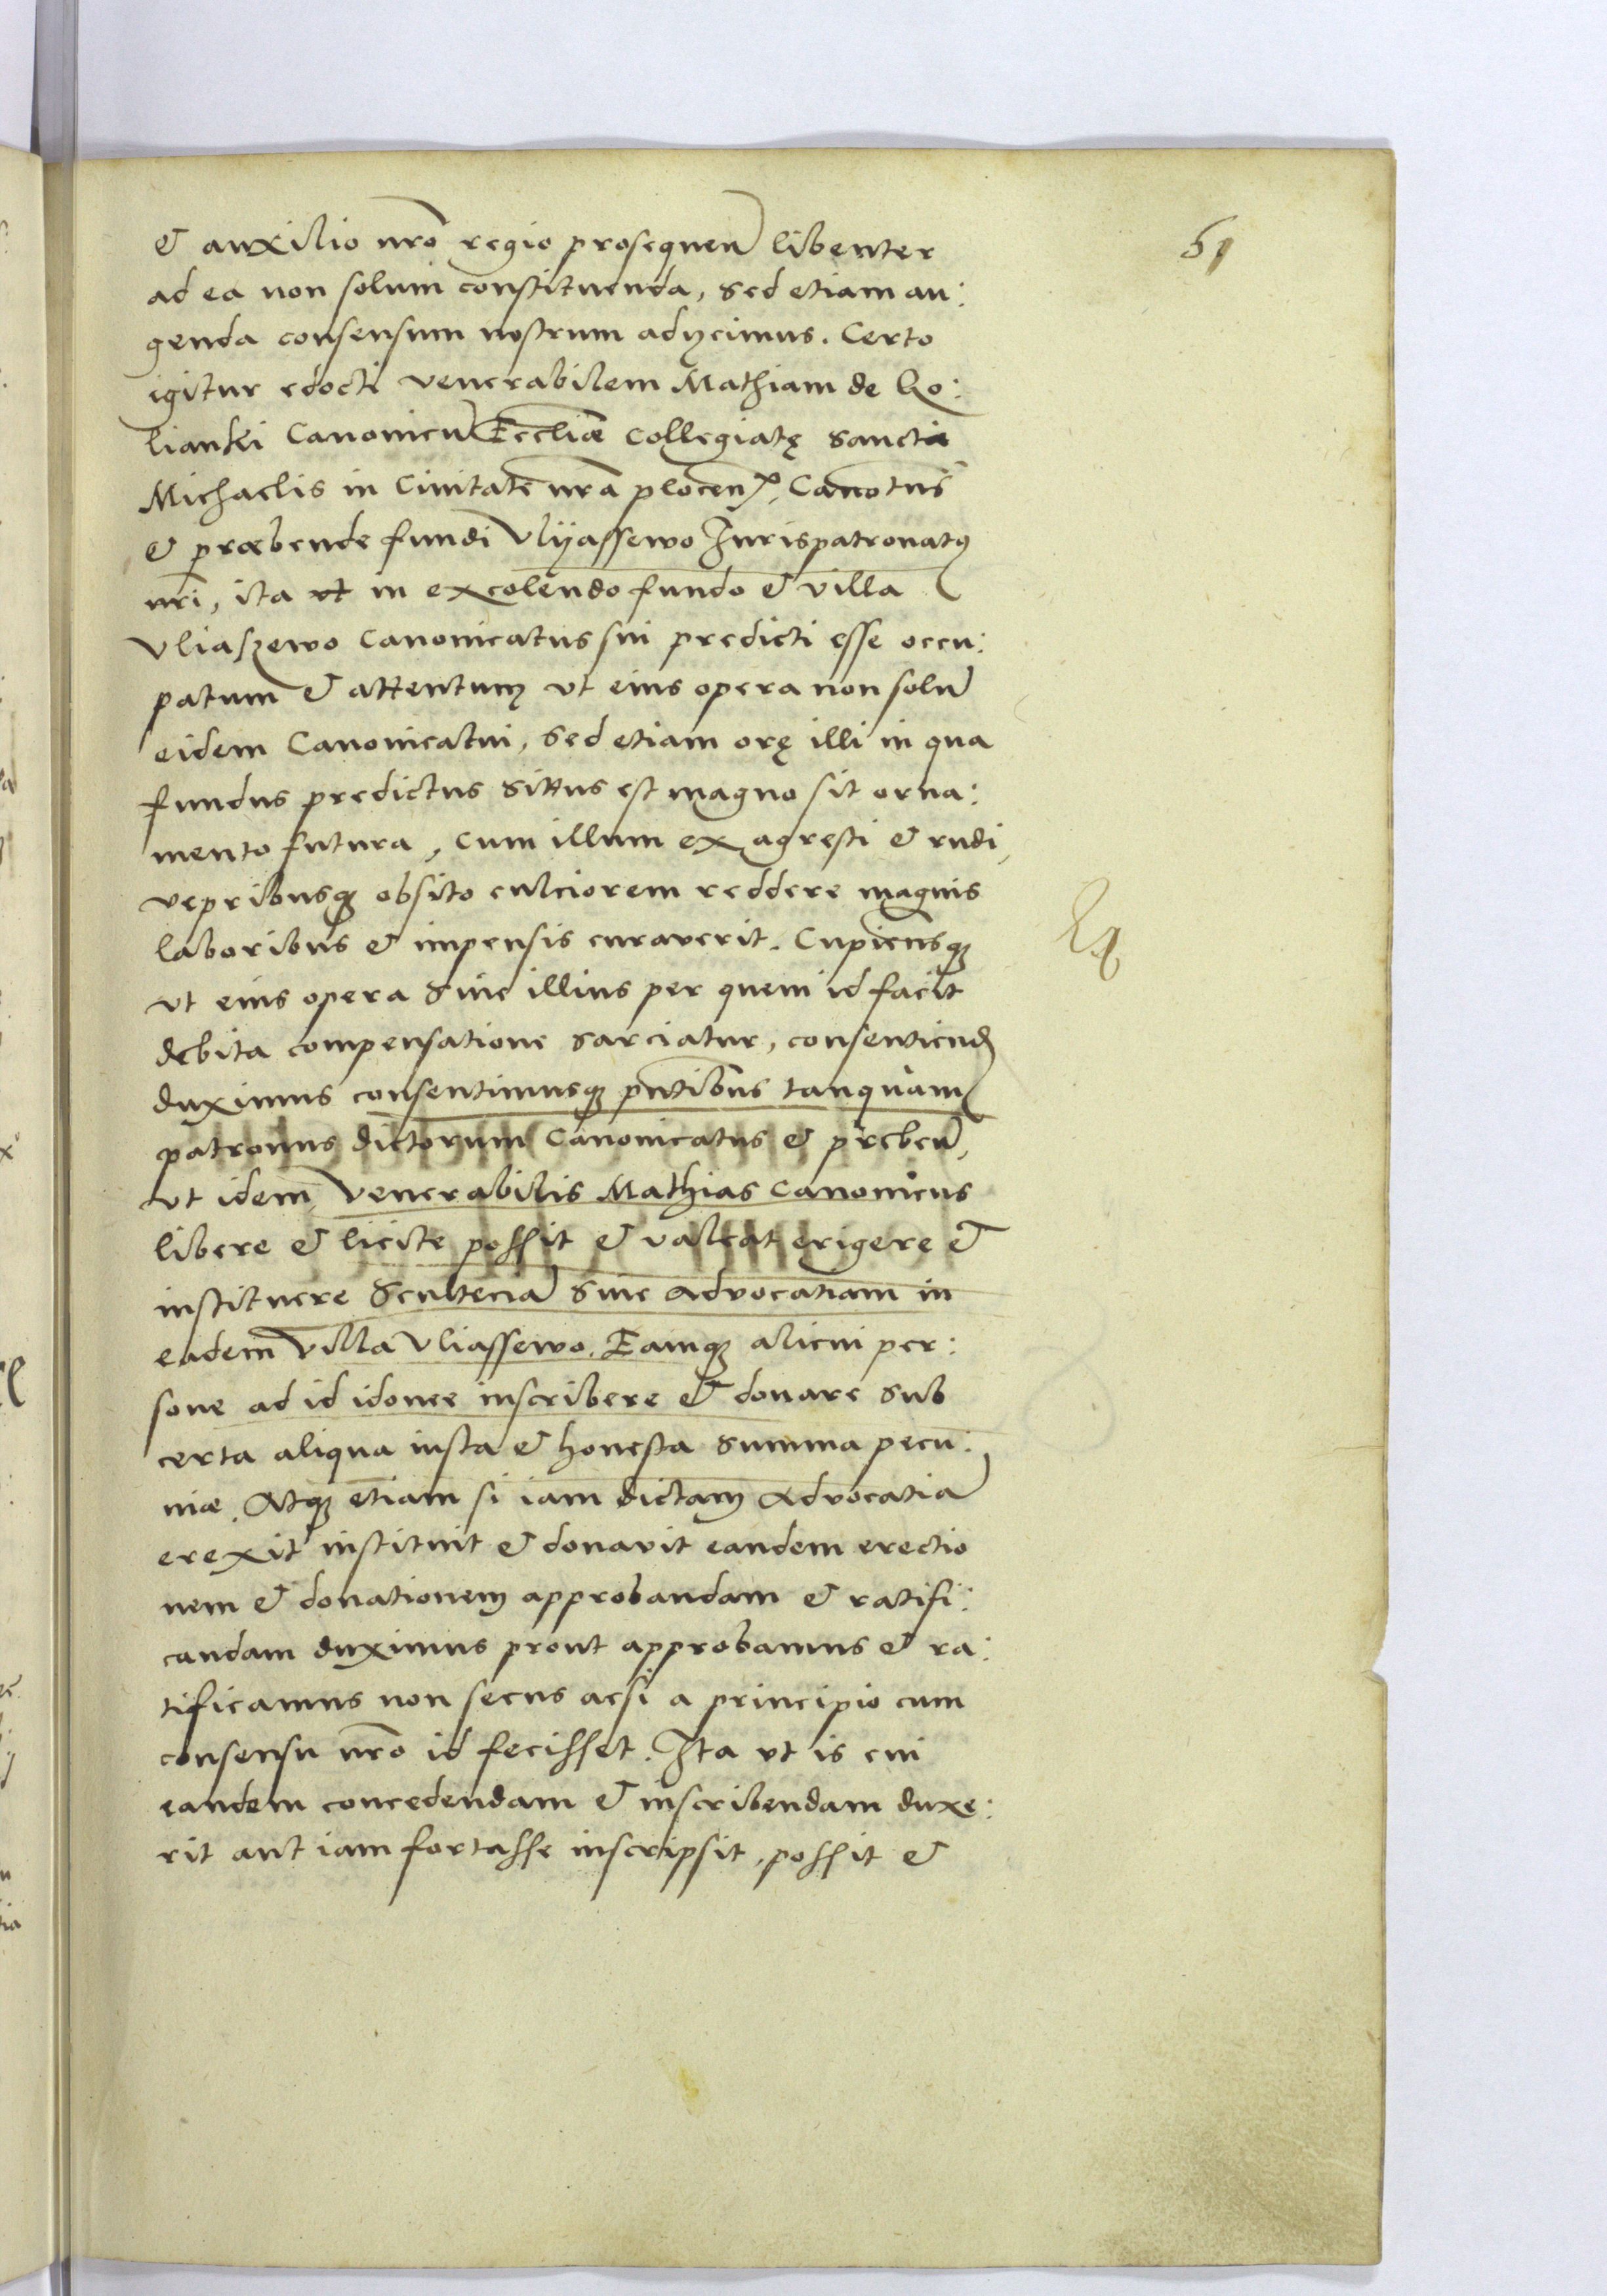 61
& auxilio nro regio prosequen libenter
ad ea non solum constituenda, sed etiam au:
genda consensum nostrum adycimus. Certo
igitur edocti venerabilem Mathiam de Ko:
lianki Canonicu Eccliæ Collegiatę sancti
Michaelis in Ciuitate nra plocen, Canotus
& præbende fundi Vlyassewo Jurispatronatus
nri, ita vt in excolendo fundo & villa
Vliaszewo Canonicatus sui predicti esse occu:
patum & attentum vt eius opera non solu
eidem Canonicatui, sed etiam orę illi in qua
fundus predictus sittus est magno sit orna:
mento futura, cum illum ex agresti & rudi,
vepribusq obsito culciorem reddere magnis
laboribus & impensis curaverit. Cupiensq
vt eius opera siue illius per quem id facit
debita compensatione sarciatur, consentiend
duximus consentimusq pntibus tanquam
patronus dictorum Canonicatus & preben,
vt idem venerabilis Mathias Canonicus
libere & licite possit & valeat erigere &
instituere Scultecia siue advocatiam in
eadem villa Vliassewo. Eamq alicui per:
sone ad id idonee inscribere & donare sub
certa aliqua iusta & honesta summa pecu:
niæ. Atq etiam si iam dictam Advocatia
erexit instituit & donavit eandem erectio
nem & donationem approbandam & ratifi:
candam duximus prout approbamus & ra:
tificamus non secus acsi a principio cum
consensu nro id fecisset. Ita vt is cui
eandem concedendam & inscribendam duxe:
rit aut iam fortasse inscripsit, possit &